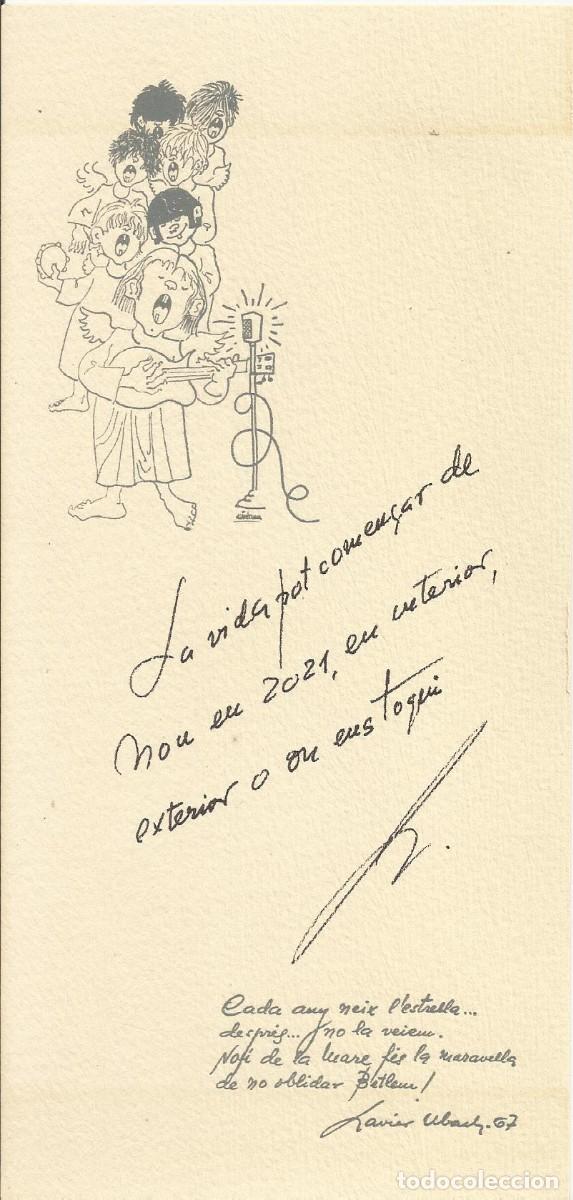 La vida pot començar de
nou en 2021, en interior,
exterior o on ens toqui
Cada any neix l'estrella...
després... no la veiem.
Noi de la Mare fés la maravella
de no oblidar Betlem!
Xavier Ubach. 67
todocoleccion